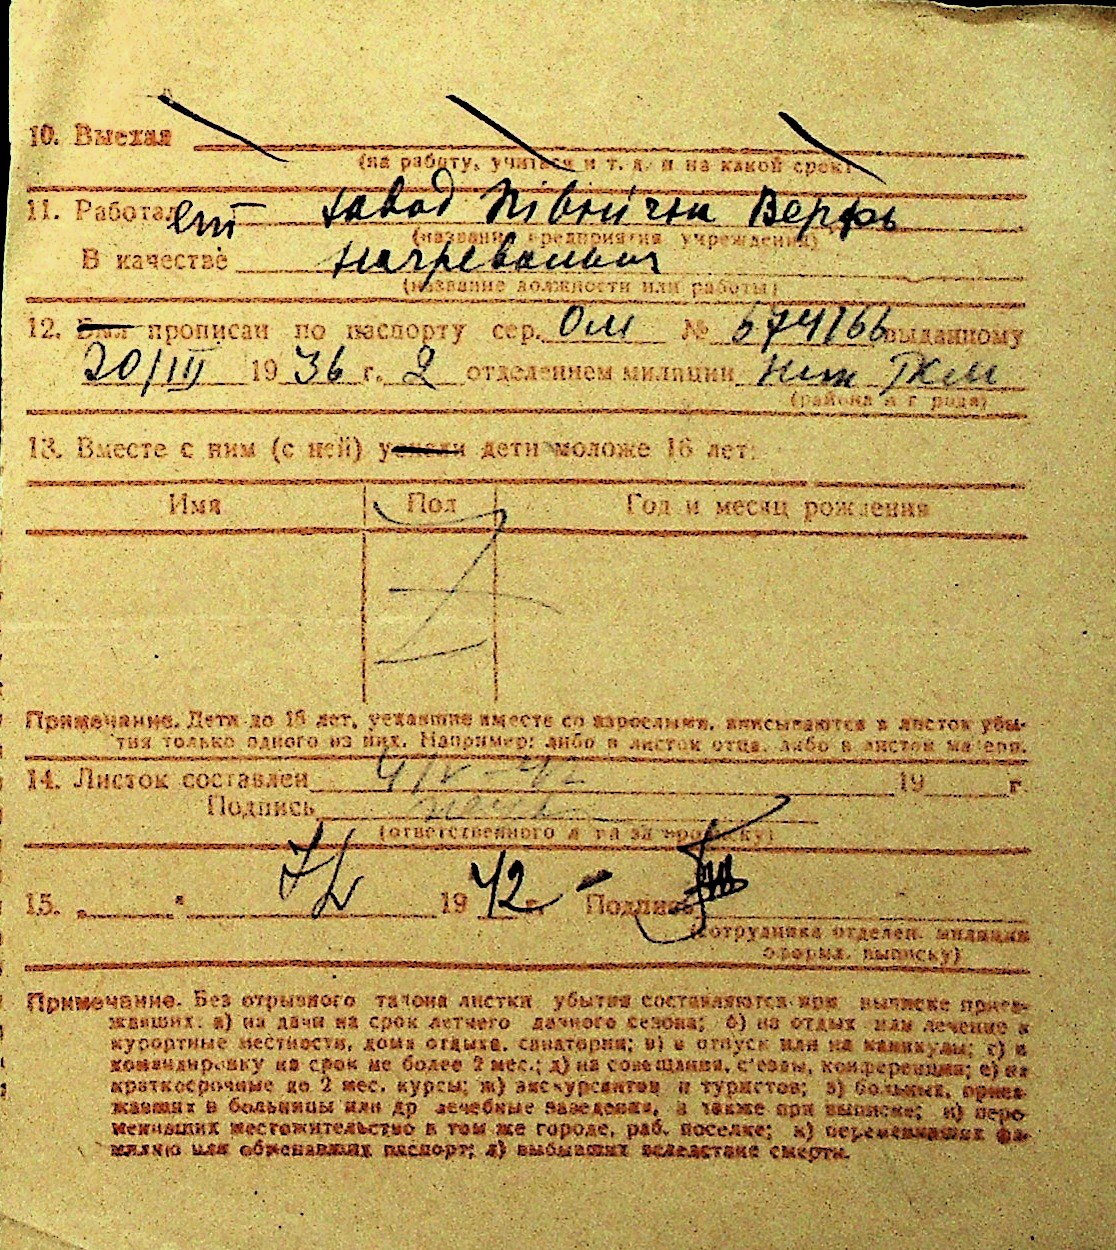 10. Выехал
(на работу, учиться и т. д. и на какой срок)
11. Работал завод Північна Верфь
(название предприятия учреждения)
В качестве
(название должности или работы)
12. Был прописан по паспорту сер. ОМ № 674166 выданному
20/III 1936 г. 2 отделением милиции
(района и города)
13. Вместе с ним (с ней) уехали дети моложе 16 лет:
Имя Пол Год и месяц рождения
Примечание. Дети до 16 лет, уехавшие вместе со взрослыми, вписываются в листок убы-
тия только одного из них. Например: либо в листок отца, либо в листок матери.
14. Листок составлен 19 г.
Подпись
(ответственного л-та за прописку)
15. „ " 1942 г. Подпись
(сотрудника отделен. милиции
оформл. выписку)
Примечание. Без отрывного талона листки убытия составляются при выписке приез-
жавших: а) на дачи на срок летнего дачного сезона; б) на отдых или лечение в
курортные местности, дома отдыха, санатории; в) в отпуск или на каникулы; г) в
командировку на срок не более 2 мес.; д) на совещания, с'езды, конференции; е) на
краткосрочные до 2 мес. курсы; ж) экскурсантов и туристов; з) больных, приез-
жавших в больницы или др лечебные заведения, а также при выписке; и) пере-
менивших местожительство в том же городе, раб. поселке; к) переменивших фа-
милию или обменявших паспорт; л) выбывших вследствие смерти.